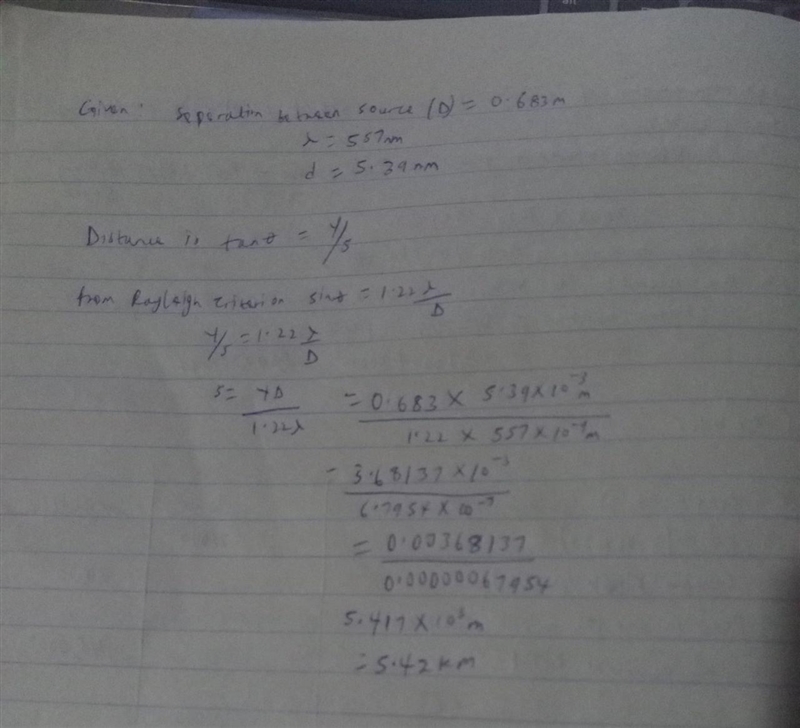 Given: Separation between source (D) = 0.683m
λ = 557nm
d = 5.39nm
Distance is tanθ = Y/S
from Rayleign criterion sinθ = 1.22 λ/D
Y/S = 1.22 λ/D
S = YD/1.22λ = 0.683 × 5.39×10⁻³m / 1.22 × 557×10⁻⁹m
= 3.68137×10⁻³ / 6.7954×10⁻⁷
= 0.00368137 / 0.00000067954
5.417×10³m
= 5.42 km